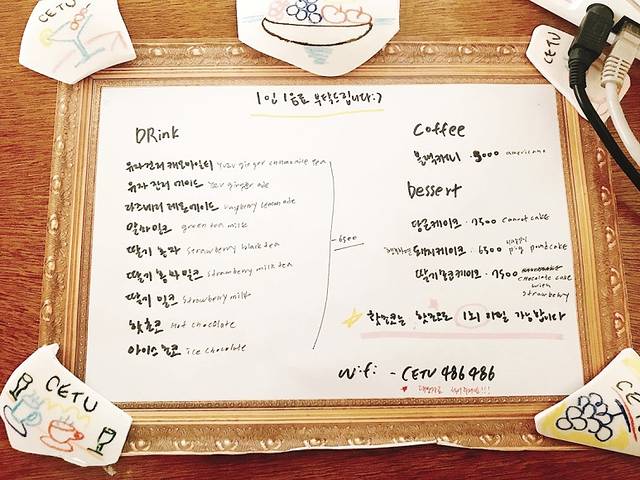 CETU
CETU
1인 1음료 부탁드립니다:)
DRink
유자진저캐모마일티 yuzu ginger chamomile tea
유자진저에이드 yuzu ginger ade
라즈베리 레몬에이드 raspberry lemonade
말차밀크 green tea milk
딸기 홍차 strawberry black tea
딸기 홍차밀크 strawberry milk tea
딸기 밀크 strawberry milk
핫초코 Hot chocolate
아이스초코 ice chocolate
6500
Coffee
블랙커피 · 5000 americano
Dessert
당근케이크 · 7500 carrot cake
돼지케이크 · 6500 happy pig poundcake
딸기초코케이크 · 7500 chocolate cake with strawberry
1회 리필 가능합니다
Wifi - CETU 486 486
CETU